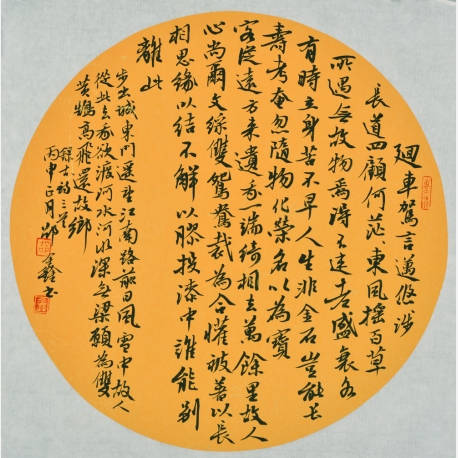 迴車駕言邁悠々涉
長道四顧何茫々東風搖百草
所遇無故物焉得不速老盛衰各
有時立身苦不早人生非金石豈能長
壽考奄忽隨物化榮名以為寶
客從遠方來遺我一端綺相去萬餘里故人
心尚爾文綵雙鴛鴦裁為合懽被著以長
相思緣以結不解以膠投漆中誰能別
離此
步出城東門遙望江南路前日風雪中故人
從此去我欲渡河水河水深無梁願為雙
黃鵠高飛還故鄉
錄古詩三首
丙申正月邵鑫書